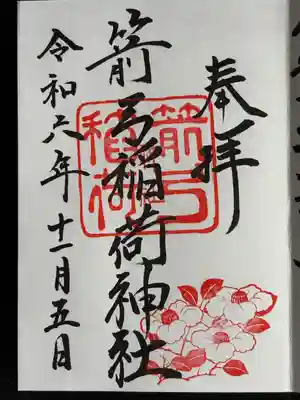 奉拝
箭弓稲荷神社
令和六年十一月五日